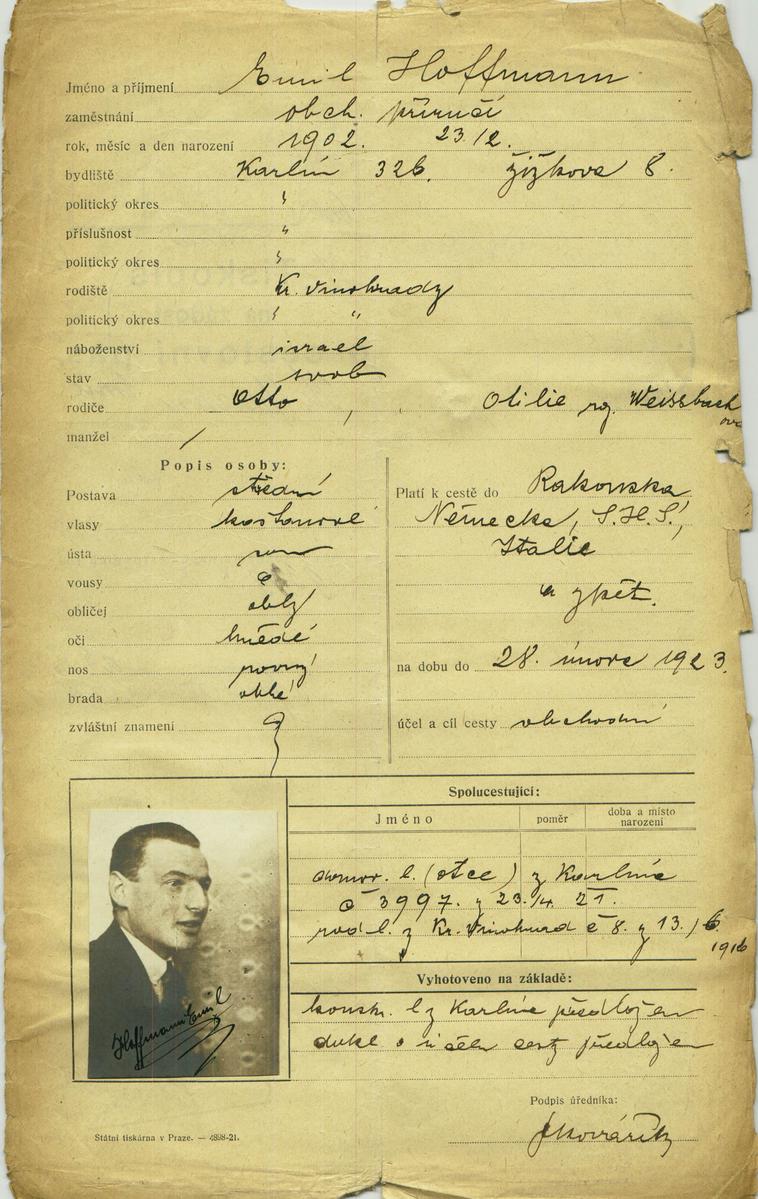 Jméno a příjmení Emil Hoffmann
zaměstnání obch. příručí
rok, měsíc a den narození 1902. 23/2.
bydliště Karlín 326, Žižkova 8.
politický okres "
příslušnost "
politický okres "
rodiště Kr. Vinohrady
politický okres " "
náboženství israel
stav svob
rodiče Otto , Otilie roz. Weissbach
ova
manžel /
Popis osoby:
Postava střední
vlasy kaštanové
ústa
vousy
obličej oblý
oči hnědé
nos rovný
brada oblá
zvláštní znamení
Platí k cestě do Rakouska
Německa, S.H.S.,
Italie
a zpět.
na dobu do 28. února 1923.
účel a cíl cesty obchodní
Hoffmann Emil
Spolucestující:
Jméno poměr doba a místo narození
domov. l. (otce) z Karlína
č 3997. z 23./4 21.
rod l. z Kr. Vinohrad č 8. z 13./6.
1916
Vyhotoveno na základě:
konskr. l z Karlína předložen
dokl o účelu cesty předložen
Podpis úředníka:
Státní tiskárna v Praze. — 4898-21.